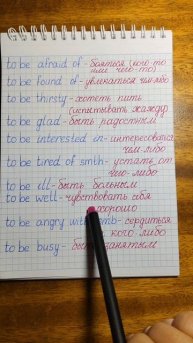 to be afraid of - бояться (кого то
или чего-то)
to be found of - увлекаться чем-либо
to be thirsty - хотеть пить
(испытывать жажду)
to be glad - быть радостным
to be interested in - интересоваться
чем-либо
to be tired of smth - устать от
чего-либо
to be ill - быть больным
to be well - чувствовать себя
хорошо
to be angry with smb - сердиться
кого либо
to be busy - быть занятым